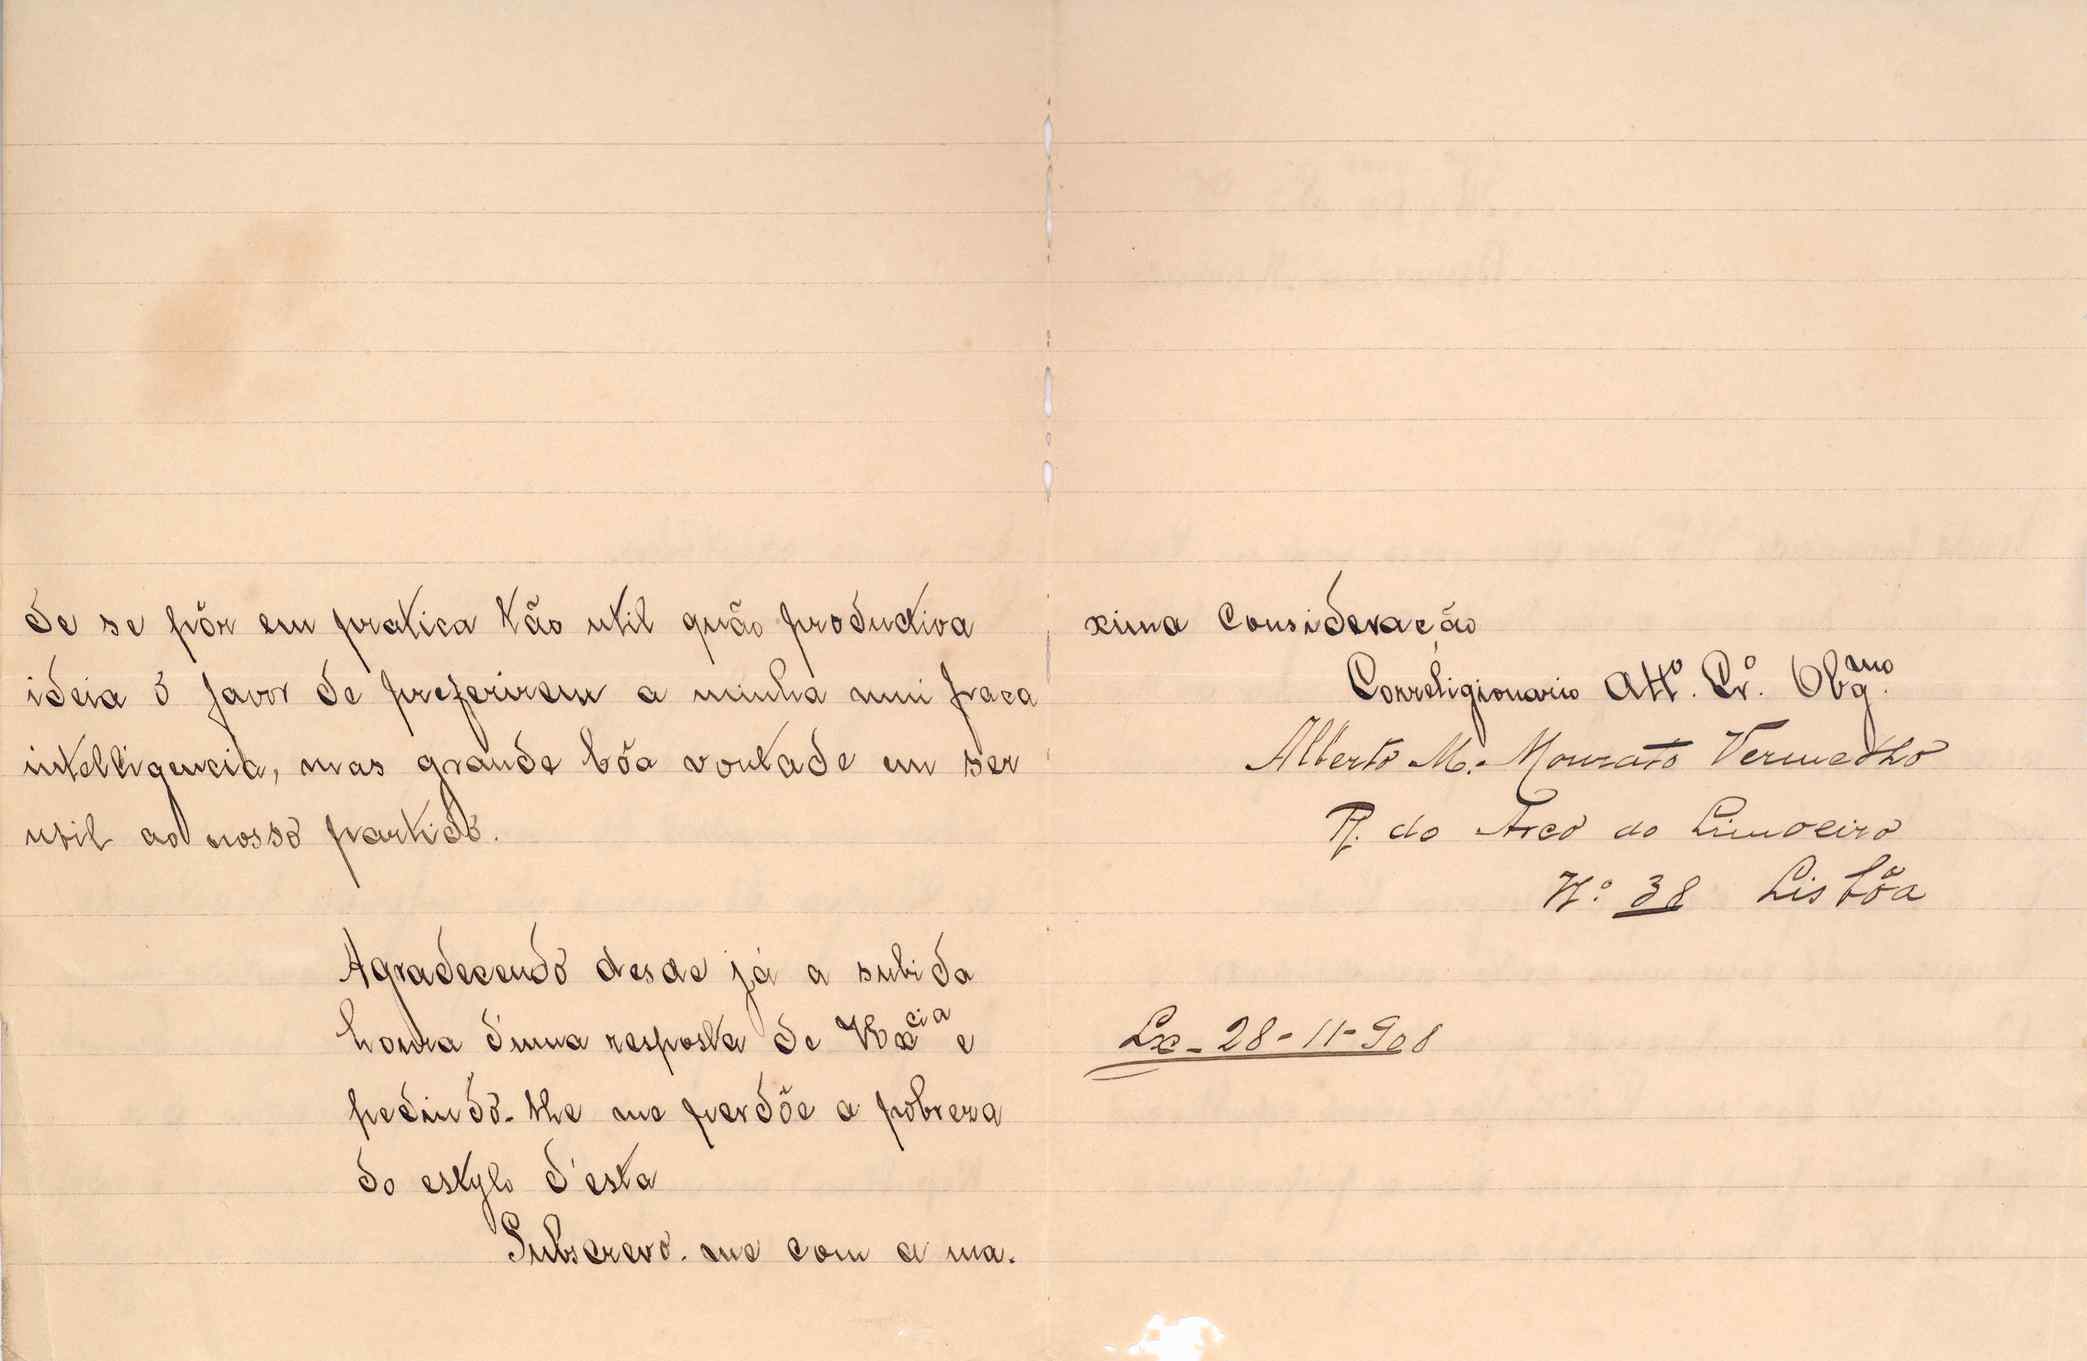 de se pôr em pratica tão util quão productiva
ideia o favor de preferirem a minha mui fraca
intelligencia, mas grande bôa vontade em ser
util ao nosso partido.
Agradecendo desde já a subida
honra d'uma resposta de V Excia e
pedindo-lhe me perdôe a pobreza
do estylo d'esta
Subscrevo-me com a ma-
xima consideração
Correligionario Attº. Crº. Obgmo.
Alberto M. Mourato Vermelho
R. do Arco do Limoeiro
Nº. 38 Lisbôa
Lx- 28-11-908